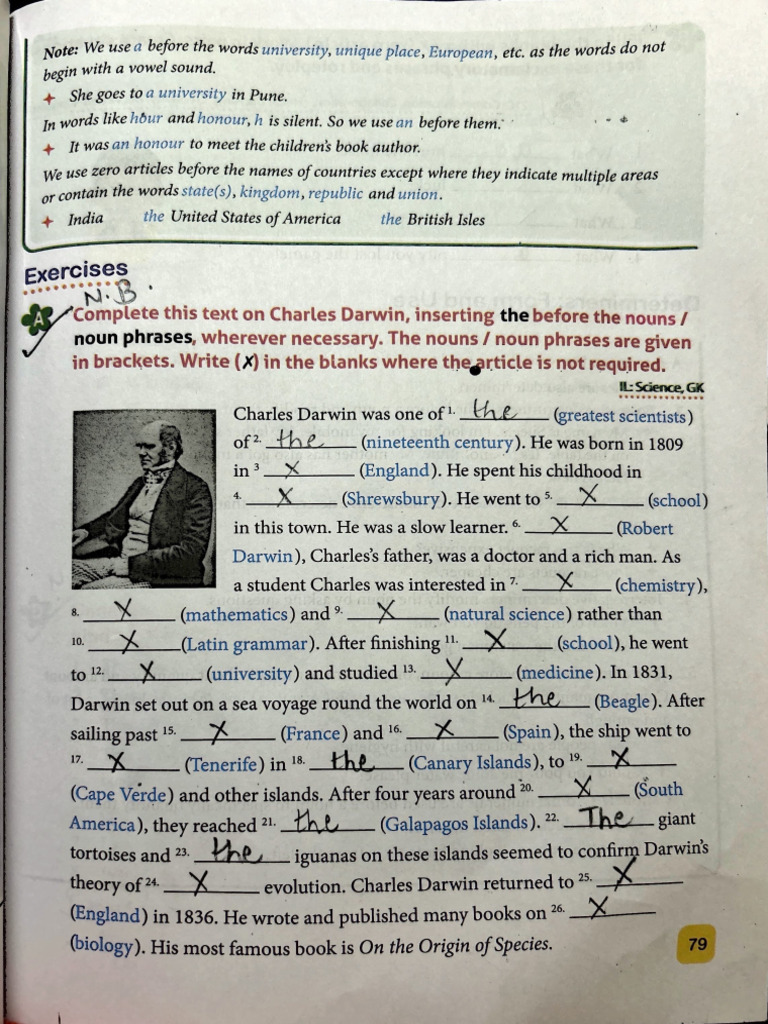 Note: We use a before the words university, unique place, European, etc. as the words do not
begin with a vowel sound.
She goes to a university in Pune.
In words like hour and honour, h is silent. So we use an before them.
It was an honour to meet the children's book author.
We use zero articles before the names of countries except where they indicate multiple areas
or contain the words state(s), kingdom, republic and union.
India the United States of America the British Isles
Exercises
N.B.
A Complete this text on Charles Darwin, inserting the before the nouns /
noun phrases, wherever necessary. The nouns / noun phrases are given
in brackets. Write (✗) in the blanks where the article is not required.
IL: Science, GK
Charles Darwin was one of 1. the (greatest scientists)
of 2. the (nineteenth century). He was born in 1809
in 3 X (England). He spent his childhood in
4. X (Shrewsbury). He went to 5. X (school)
in this town. He was a slow learner. 6. X (Robert
Darwin), Charles's father, was a doctor and a rich man. As
a student Charles was interested in 7. X (chemistry),
8. X (mathematics) and 9. X (natural science) rather than
10. X (Latin grammar). After finishing 11. X (school), he went
to 12. X (university) and studied 13. X (medicine). In 1831,
Darwin set out on a sea voyage round the world on 14. the (Beagle). After
sailing past 15. X (France) and 16. X (Spain), the ship went to
17. X (Tenerife) in 18. the (Canary Islands), to 19. X
(Cape Verde) and other islands. After four years around 20. X (South
America), they reached 21. the (Galapagos Islands). 22. The giant
tortoises and 23. the iguanas on these islands seemed to confirm Darwin's
theory of 24. X evolution. Charles Darwin returned to 25. X
(England) in 1836. He wrote and published many books on 26. X
(biology). His most famous book is On the Origin of Species.
79